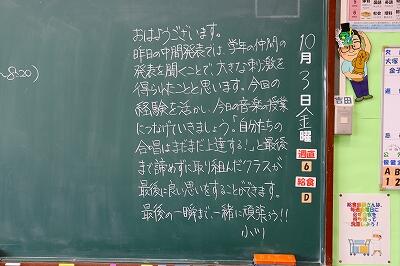 ~8:20)
おはようございます。
昨日の中間発表では、学年の仲間の
発表を聞くことで、大きな刺激を
得られたことと思います。今回の
経験を活かし、今日の音楽の授業
につなげていきましょう。「自分たちの
合唱はまだまだ上達する!」と最後
まで諦めずに取り組んだクラスが
最後に良い思いをすることができます。
最後の一瞬まで、一緒に頑張ろう!!
小川
10月3日金曜
週直
6
給食
D
吉田
A B
1 2